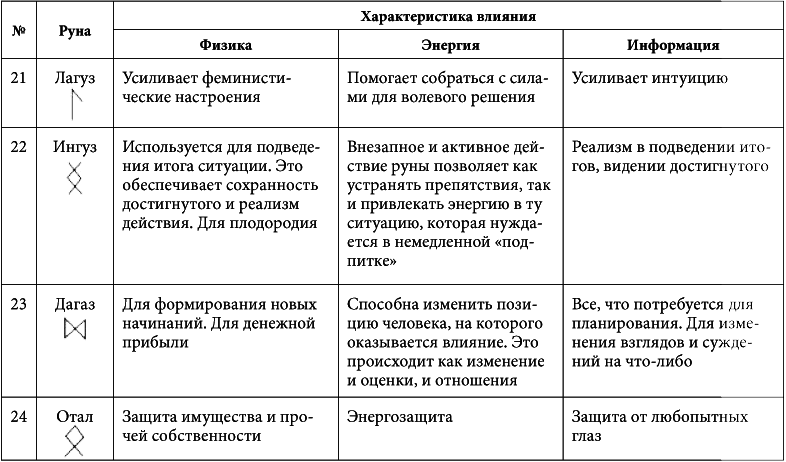 № Руна Характеристика влияния
Физика Энергия Информация
21 Лагуз Усиливает феминисти- Помогает собраться с сила- Усиливает интуицию
ческие настроения ми для волевого решения
22 Ингуз Используется для подведе- Внезапное и активное дей- Реализм в подведении ито-
ния итога ситуации. Это ствие руны позволяет как гов, видении достигнутого
обеспечивает сохранность устранять препятствия, так
достигнутого и реализм и привлекать энергию в ту
действия. Для плодородия ситуацию, которая нужда-
ется в немедленной «под-
питке»
23 Дагаз Для формирования новых Способна изменить пози- Все, что потребуется для
начинаний. Для денежной цию человека, на которого планирования. Для изме-
прибыли оказывается влияние. Это нения взглядов и сужде-
происходит как изменение ний на что-либо
и оценки, и отношения
24 Отал Защита имущества и про- Энергозащита Защита от любопытных
чей собственности глаз